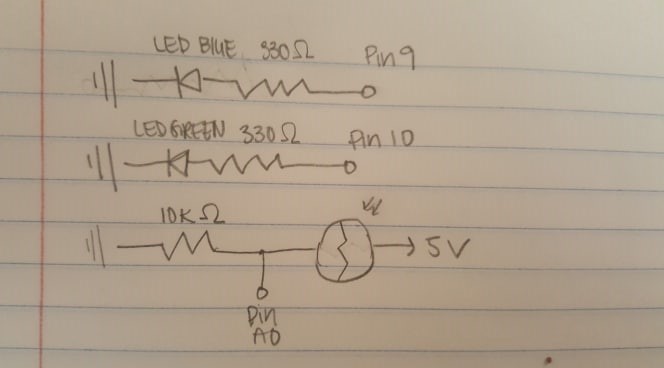 LED BLUE 330Ω Pin 9
LED GREEN 330Ω Pin 10
10K Ω
5V
Pin
A0